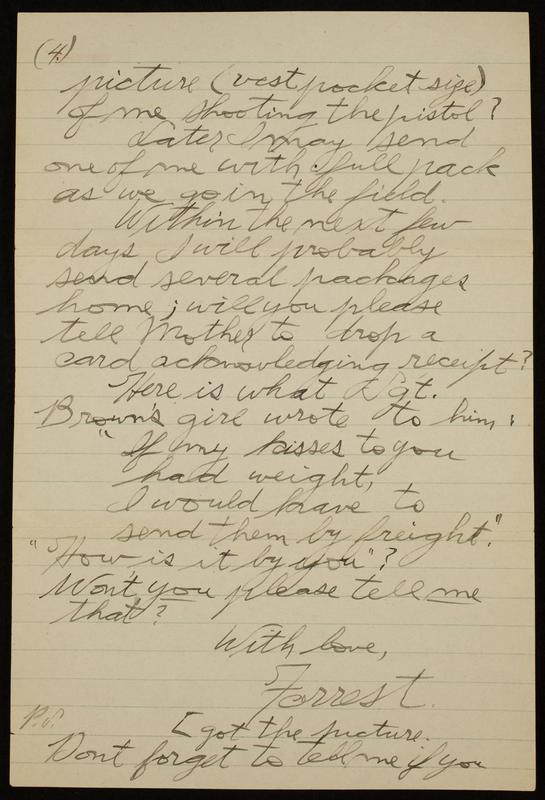 (4)
picture (vest pocket size)
of me shooting the pistol?
Later I may send
one of me with full pack
as we go in the field.
Within the next few
days I will probably
send several packages
home; will you please
tell Mother to drop a
card acknowledging receipt?
Here is what Sgt.
Brown's girl wrote to him:
"If my kisses to you
had weight,
I would have to
send them by freight."
"How is it by you"?
Won't you please tell me
that?
With love,
Forrest.
P.S.
[got the picture.
Dont forget to tell me if you